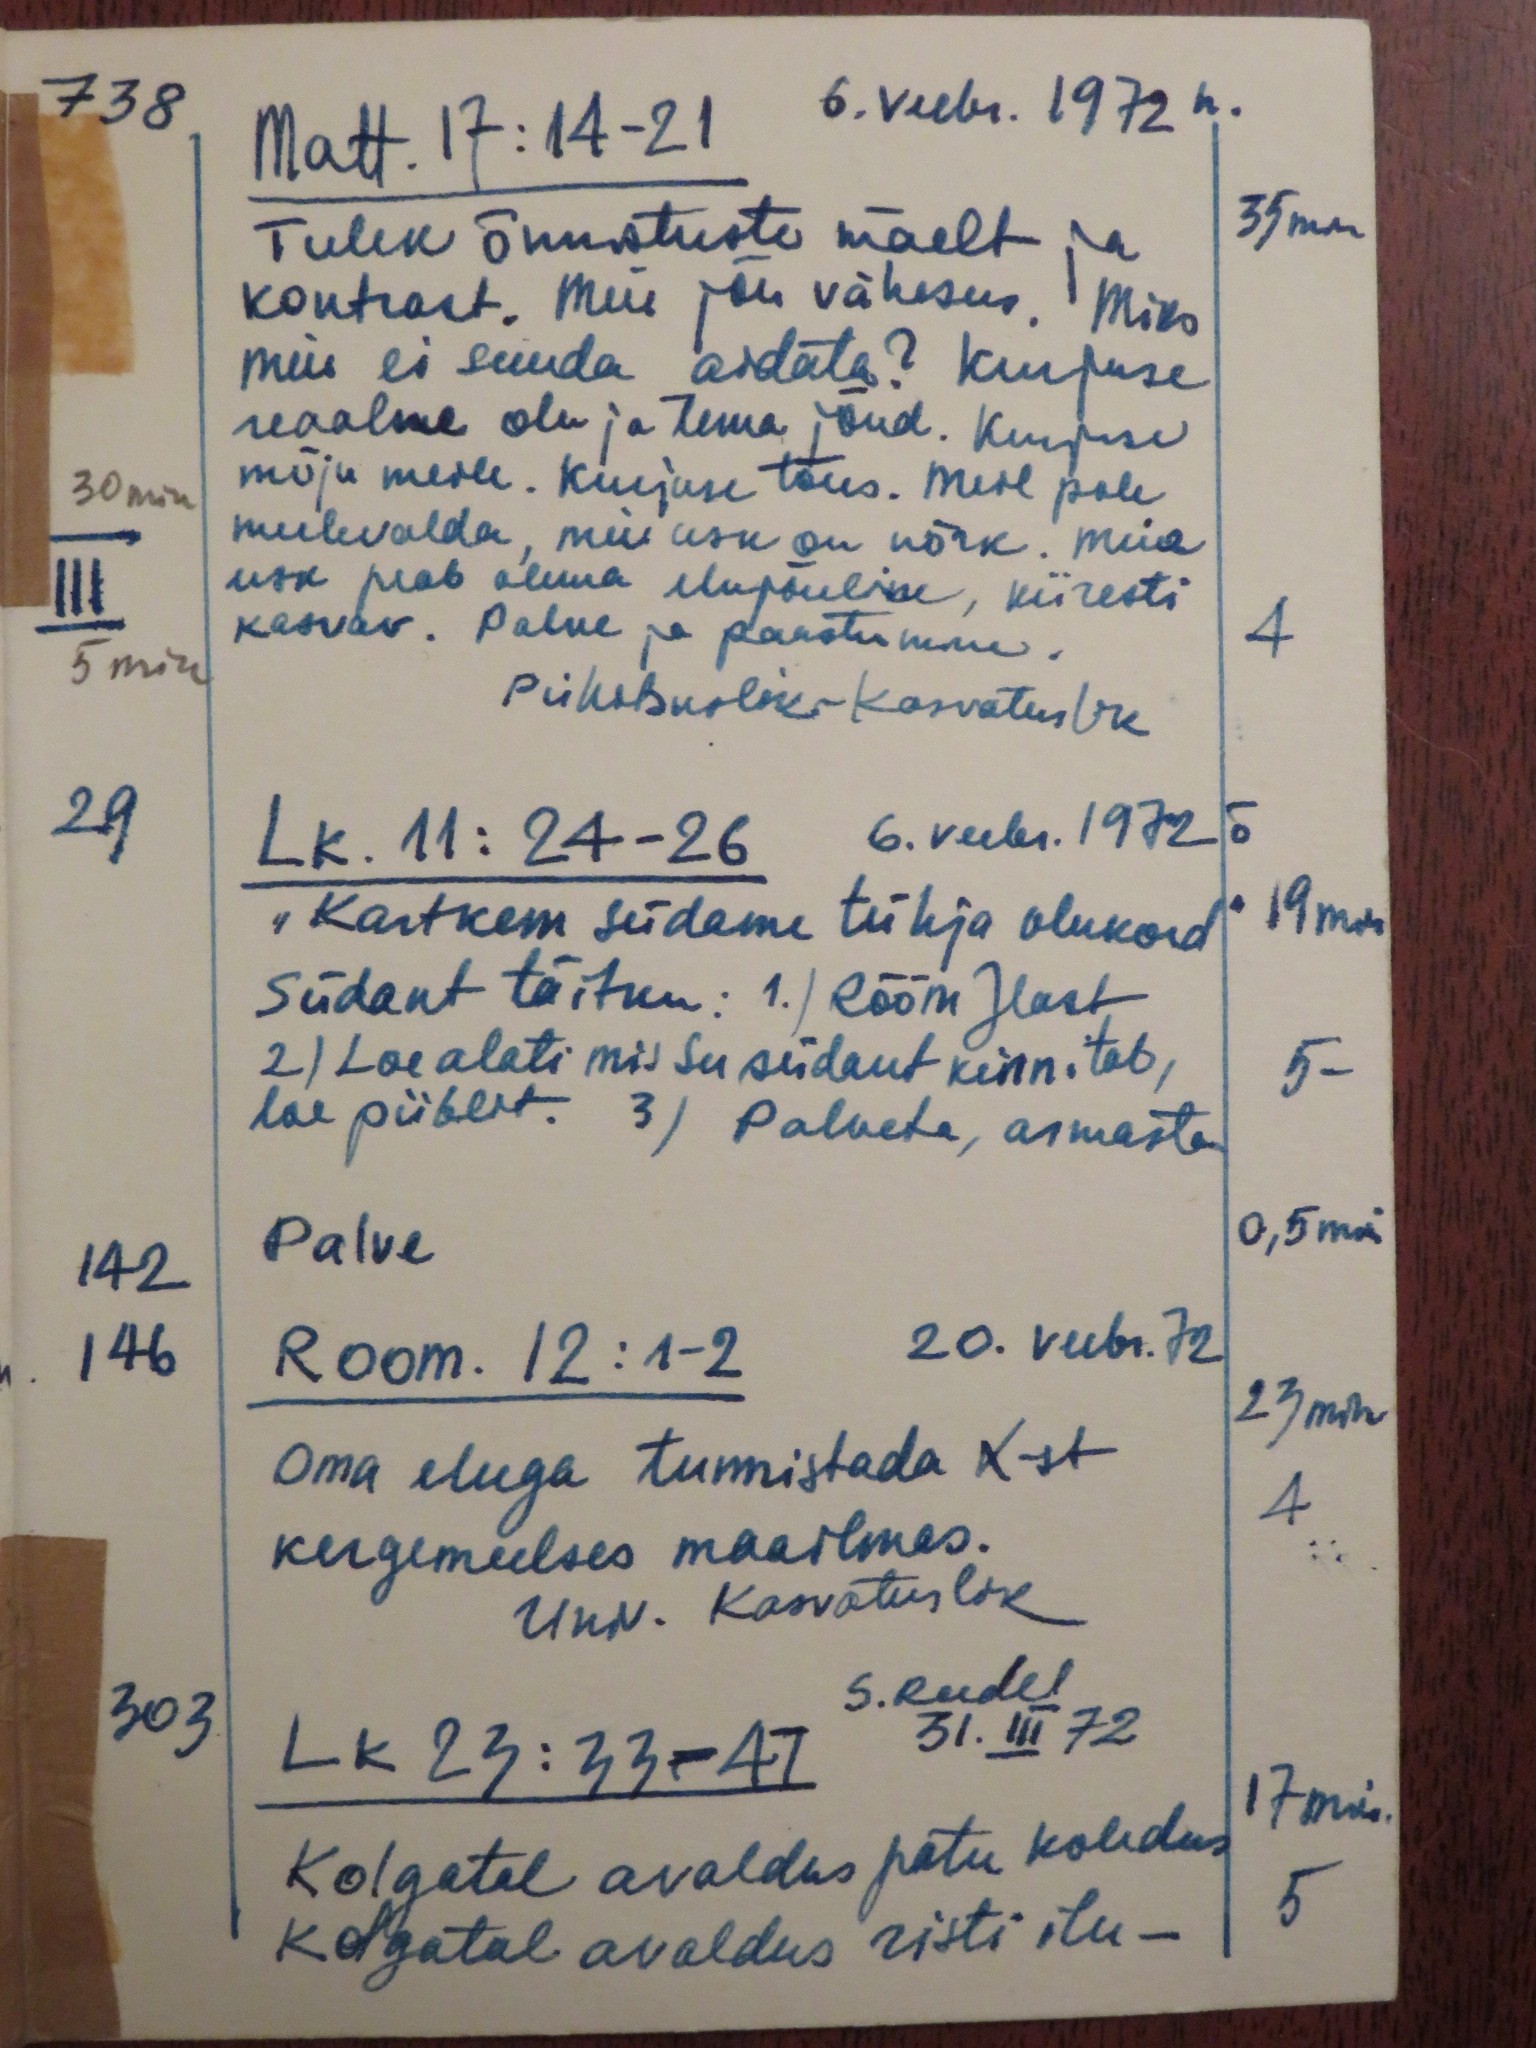 738
Matt. 17:14-21 6. veebr. 1972 h.
35 min
Tulek õnnistuste mäelt ja
kontrast. Meie jõu vähesus. Miks
meie ei suuda aidata? Kurjuse
reaalne olu ja tema jõud. Kurjuse
mõju meile. Kurjuse tõus. Meil pole
30 min
meelevalda, meie usk on nõrk. Meie
III
usk peab olema elujõuline, kiiresti
kasvav. Palve ja paastumine. 4
5 min
Piiblikuslik-Kasvatuslik
29
Lk. 11:24-26 6. veebr. 1972 õ
„Kartkem südame tühja olukord" 19 min
Südant täitku: 1.) Rõõm Jlast
2) Loe alati mis su südant kinnitab, 5-
loe piiblit. 3) Palveta, armasta
Palve 0,5 min
142
146 Room. 12:1-2 20. veebr. 72
23 min
Oma eluga tunnistada K-st
4
kergemeelses maailmas.
Univ. Kasvatuslik
303 S. Reedel
Lk 23:33-47 31. III 72
17 min.
Kolgatal avaldus patu koledus
Kolgatal avaldus risti ilu- 5